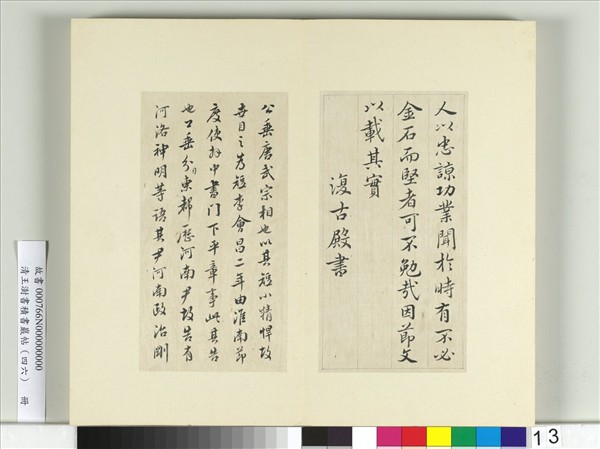 人以忠諒功業聞於時有不必
金石而堅者可不勉哉因節文
以載其實
復古殿書
公垂唐武宗相也以其短小精悍故
世目之為短李會昌二年由淮南節
度使拜中書門下平章事此其告
也公垂分東都歷河南尹故告有
河洛神明等語其尹河南政治剛
故書000766N000000000
清王澍書積書巖帖(四六) 冊
13